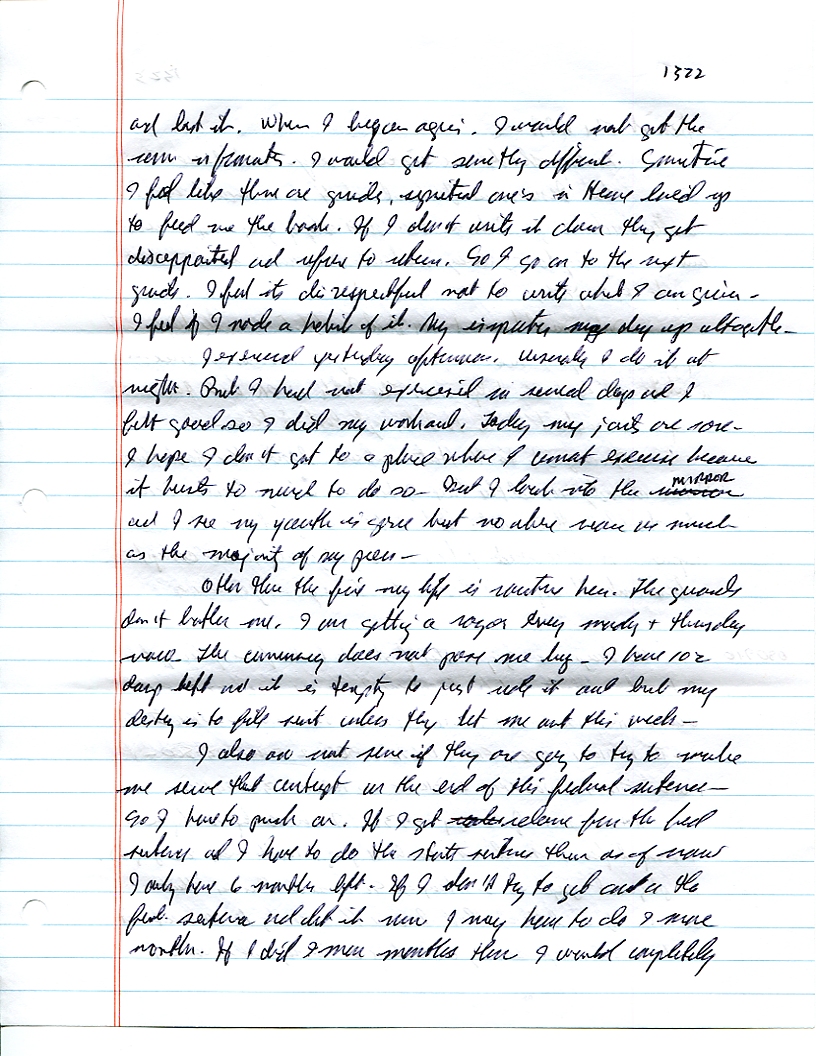 1322
and lost it. When I began again. I would not get the
same information. I would get something different. Sometime
I feel like there are guides, spirited one's in Heaven lined up
to feed me the book. If I don't write it down they get
disappointed and refuse to return. So I go on to the next
guide. I feel its disrespectful not to write what I am given -
I feel if I made a habit of it. My inspiration may dry up altogether -
I exercised yesterday afternoon. Usually I do it at
night. But I had not exercised in several days and I
felt good so I did my workout. Today my joints are sore -
I hope I don't get to a place where I cannot exercise because
it hurts to much to do so - But I look into the MIRROR
and I see my youth is gone but no where near as much
as the majority of my peers -
Other than the fire my life is routine here. The guards
don't bother me. I am getting a razor every monday + thursday
now. The commissary does not pose me - I have 102
days left and it is tempting to just ride it out but my
destiny is to file suit unless they let me out this week -
I also am not sure if they are going to try to make
me serve that contempt on the end of this federal sentence -
So I have to push on. If I get release from the fed
sentence and I have to do the state sentence then as of now
I only have 6 months left. If I don't try to get out on the
fed. sentence and did it now I may have to do 9 more
months. If I did 9 more months then I would completely